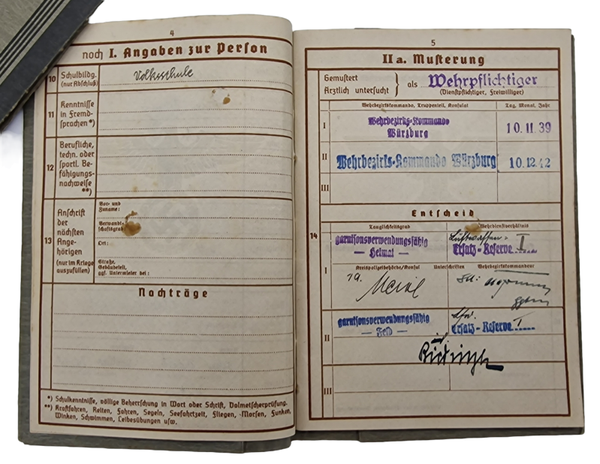 4
noch I. Angaben zur Person
10
Schulbildg.
(nur Abschluß)
Volksschule
11
Kenntnisse
in Fremd-
sprachen*)
12
Berufliche,
techn. oder
sportl. Be-
fähigungs-
nachweise
**)
13
Anschrift
der
nächsten
Ange-
hörigen
(nur im Kriege
auszufüllen)
Vor- und
Zuname:
Verwandt-
schaftsgrad:
Ort:
Straße,
Gebäudeteil,
ggf. Untermieter bei:
Nachträge
*) Schulkenntnisse, völlige Beherrschung in Wort oder Schrift, Dolmetscherprüfung.
**) Kraftfahren, Reiten, Fahren, Segeln, Seefahrtzeit, Fliegen, Morsen, Funken,
Winken, Schwimmen, Leibesübungen usw.
5
II a. Musterung
Gemustert
Ärztlich untersucht
als Wehrpflichtiger
(Dienstpflichtiger, Freiwilliger)
Wehrbezirkskommando, Truppenteil, Konsulat
Tag, Monat, Jahr
I
Wehrbezirks-Kommando
Würzburg
10.11.39
II
Wehrbezirks-Kommando Würzburg
10.12.42
III
14
Entscheid
Tauglichkeitsgrad
Wehrdienstverhältnis
garnisonverwendungsfähig
— Heimat —
Luftwaffen-
Ersatz-Reserve I
I
Unterschrift
Wehrbezirkskommandeur
garnisonverwendungsfähig
— Feld —
Ersatz-Reserve I
II
III